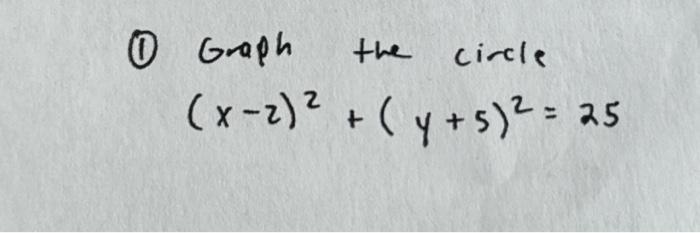 ① Graph the circle
(x-2)² + (y+5)² = 25